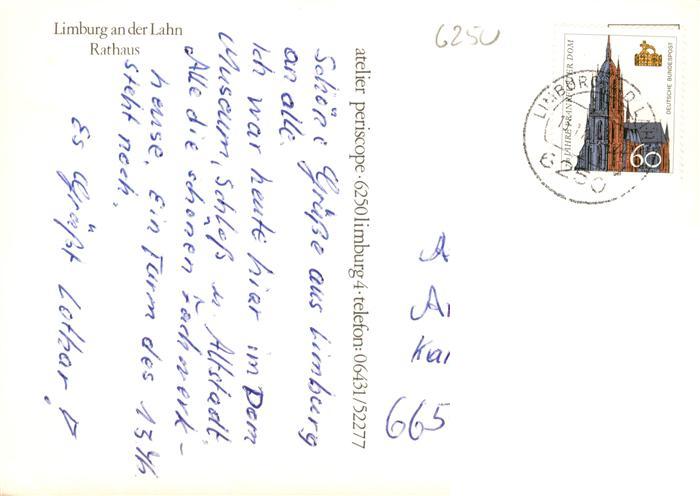 Limburg an der Lahn
Rathaus
Schöne Grüße aus Limburg
an alle.
Ich war heute hier im Dom
Museum, Schloß u. Altstadt.
Alle die schönen Fachwerk-
heuse, ein Turm des 13 Jh.
steht noch.
Es Grüßt Lothar!
atelier periscope · 6250 limburg 4 · telefon: 06431/52277
6250
DEUTSCHE BUNDESPOST
JAHRE FRANKFURTER DOM
60
LIMBURG
6250
A
A
Kai
665